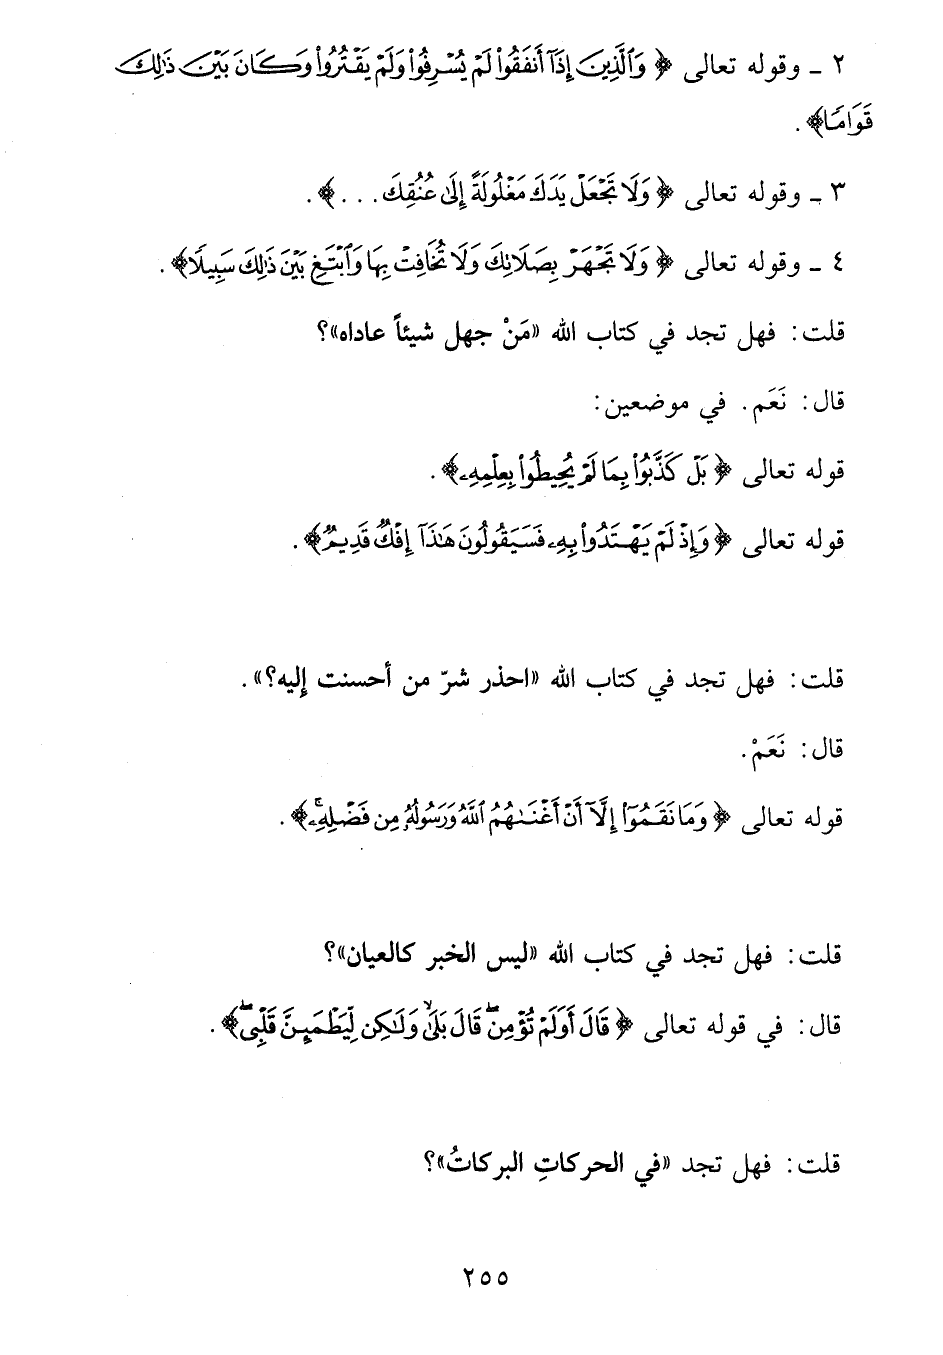 ٢ ـ وقوله تعالى ﴿ وَٱلَّذِينَ إِذَآ أَنفَقُوا۟ لَمْ يُسْرِفُوا۟ وَلَمْ يَقْتُرُوا۟ وَكَانَ بَيْنَ ذَٰلِكَ
قَوَامًا﴾ .
٣ ـ وقوله تعالى ﴿ وَلَا تَجْعَلْ يَدَكَ مَغْلُولَةً إِلَىٰ عُنُقِكَ . . . ﴾ .
٤ ـ وقوله تعالى ﴿ وَلَا تَجْهَرْ بِصَلَاتِكَ وَلَا تُخَافِتْ بِهَا وَٱبْتَغِ بَيْنَ ذَٰلِكَ سَبِيلًا﴾ .
قلت : فهل تجد في كتاب الله «مَنْ جهل شيئاً عاداه»؟
قال : نَعَم . في موضعين :
قوله تعالى ﴿ بَلْ كَذَّبُوا۟ بِمَا لَمْ يُحِيطُوا۟ بِعِلْمِهِۦ﴾ .
قوله تعالى ﴿ وَإِذْ لَمْ يَهْتَدُوا۟ بِهِۦ فَسَيَقُولُونَ هَٰذَآ إِفْكٌ قَدِيمٌ﴾ .
قلت : فهل تجد في كتاب الله «احذر شرّ من أحسنت إليه؟» .
قال : نَعَمْ .
قوله تعالى ﴿ وَمَا نَقَمُوٓا۟ إِلَّآ أَنْ أَغْنَىٰهُمُ ٱللَّهُ وَرَسُولُهُۥ مِن فَضْلِهِۦۚ﴾ .
قلت : فهل تجد في كتاب الله «ليس الخبر كالعيان»؟
قال : في قوله تعالى ﴿ قَالَ أَوَلَمْ تُؤْمِنۖ قَالَ بَلَىٰ وَلَٰكِن لِّيَطْمَئِنَّ قَلْبِىۖ﴾ .
قلت : فهل تجد «في الحركاتِ البركاتُ»؟
٢٥٥